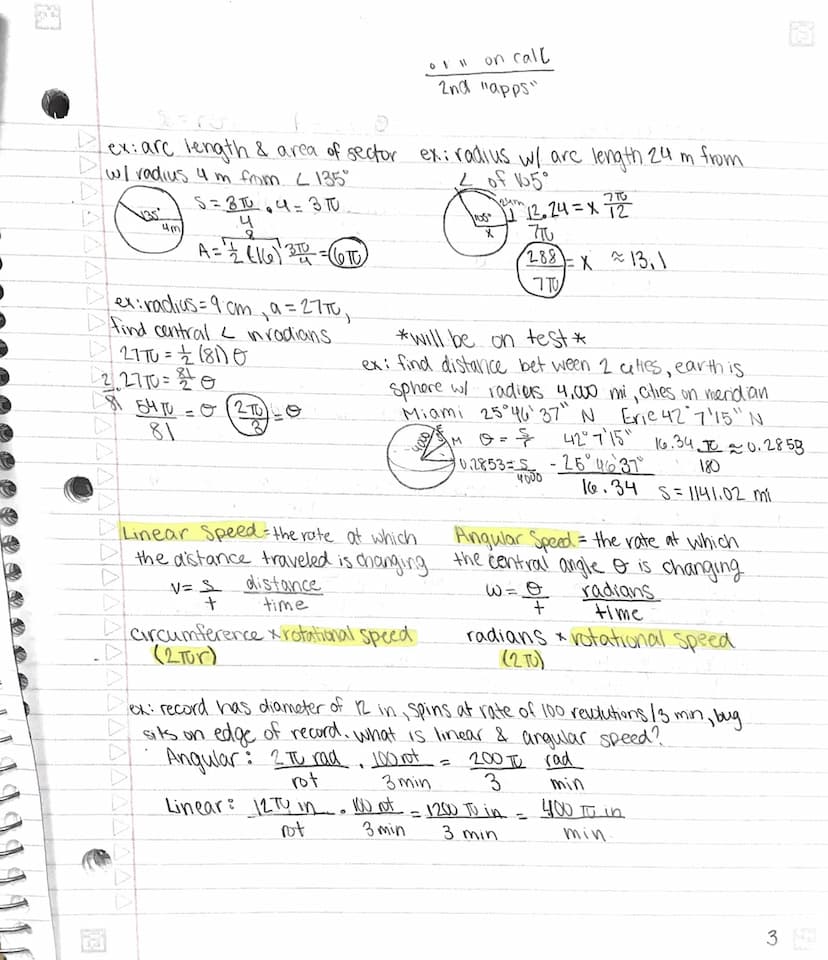 ° ' " on call
2nd "apps"
ex: arc length & area of sector
w/ radius 4 m from ∠ 135°
135°
4m
S = 3π/4 · 4 = 3π
A = 1/2 (16) 3π/4 = 6π
8
ex: radius w/ arc length 24 m from
∠ of 105°
24m
105°
x
12/7π · 24 = x 7π/12
288/7π = x ≈ 13.1
ex: radius = 9 cm, a = 27π,
find central ∠ in radians
27π = 1/2 (81) θ
2/81 · 27π = 81/2 θ
54π/81 = θ 2π/3 = θ
*will be on test*
ex: find distance between 2 cities, earth is
sphere w/ radius 4,000 mi, cities on meridian
Miami 25° 46' 37" N Erie 42° 7' 15" N
4000
M
θ = s/r
0.2853 = s/4000
42° 7' 15"
- 25° 46' 37"
16.34
16.34 · π/180 ≈ 0.2853
S = 1141.02 mi
Linear Speed = the rate at which
the distance traveled is changing
v = s/t distance/time
circumference × rotational speed
(2πr)
Angular Speed = the rate at which
the central angle θ is changing
ω = θ/t radians/time
radians × rotational speed
(2π)
ex: record has diameter of 12 in, spins at rate of 100 revolutions/3 min, bug
sits on edge of record. what is linear & angular speed?
Angular: 2π rad/rot · 100 rot/3 min = 200π/3 rad/min
Linear: 12π in/rot · 100 rot/3 min = 1200 π in/3 min = 400 π in/min
3